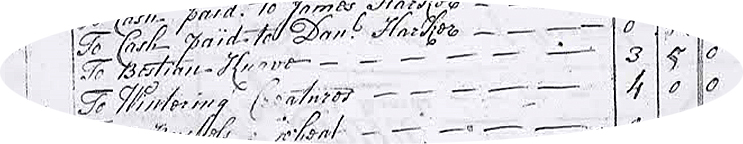 To Cash paid to James Harker
To Cash paid to Danl. Harker — — — 0
To Bestian Knave — — — — — 3 5 0
To Wintering Creatures — — — — — 4 0 0
wheat — — — — —